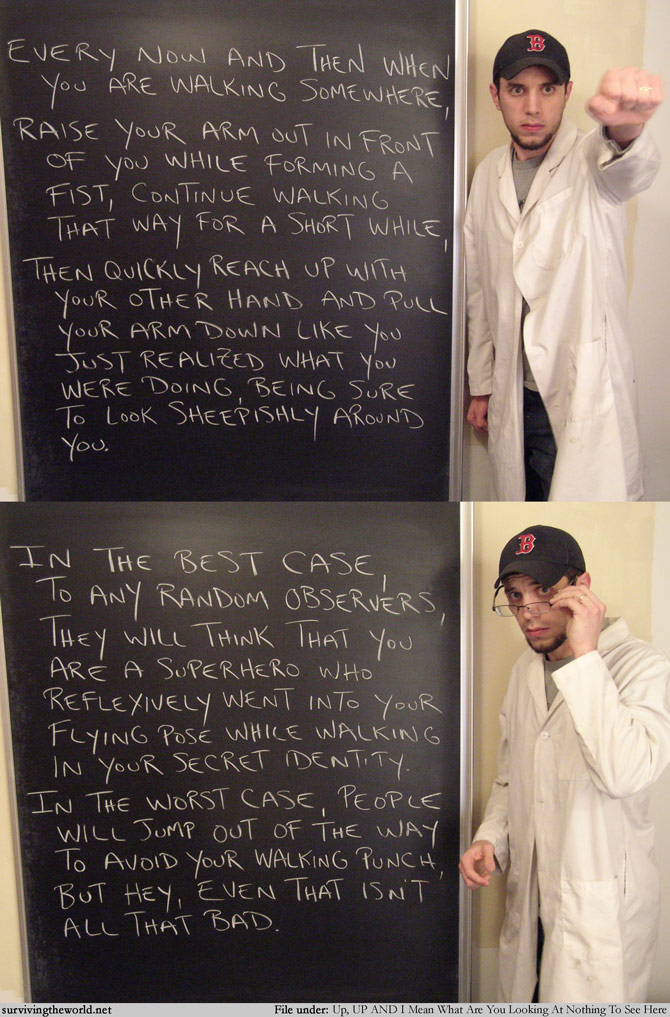 EVERY NOW AND THEN WHEN
YOU ARE WALKING SOMEWHERE,
RAISE YOUR ARM OUT IN FRONT
OF YOU WHILE FORMING A
FIST, CONTINUE WALKING
THAT WAY FOR A SHORT WHILE,
THEN QUICKLY REACH UP WITH
YOUR OTHER HAND AND PULL
YOUR ARM DOWN LIKE YOU
JUST REALIZED WHAT YOU
WERE DOING, BEING SURE
TO LOOK SHEEPISHLY AROUND
YOU.
B
IN THE BEST CASE,
TO ANY RANDOM OBSERVERS,
THEY WILL THINK THAT YOU
ARE A SUPERHERO WHO
REFLEXIVELY WENT INTO YOUR
FLYING POSE WHILE WALKING
IN YOUR SECRET IDENTITY.
IN THE WORST CASE, PEOPLE
WILL JUMP OUT OF THE WAY
TO AVOID YOUR WALKING PUNCH,
BUT HEY, EVEN THAT ISN'T
ALL THAT BAD.
B
survivingtheworld.net File under: Up, UP AND I Mean What Are You Looking At Nothing To See Here